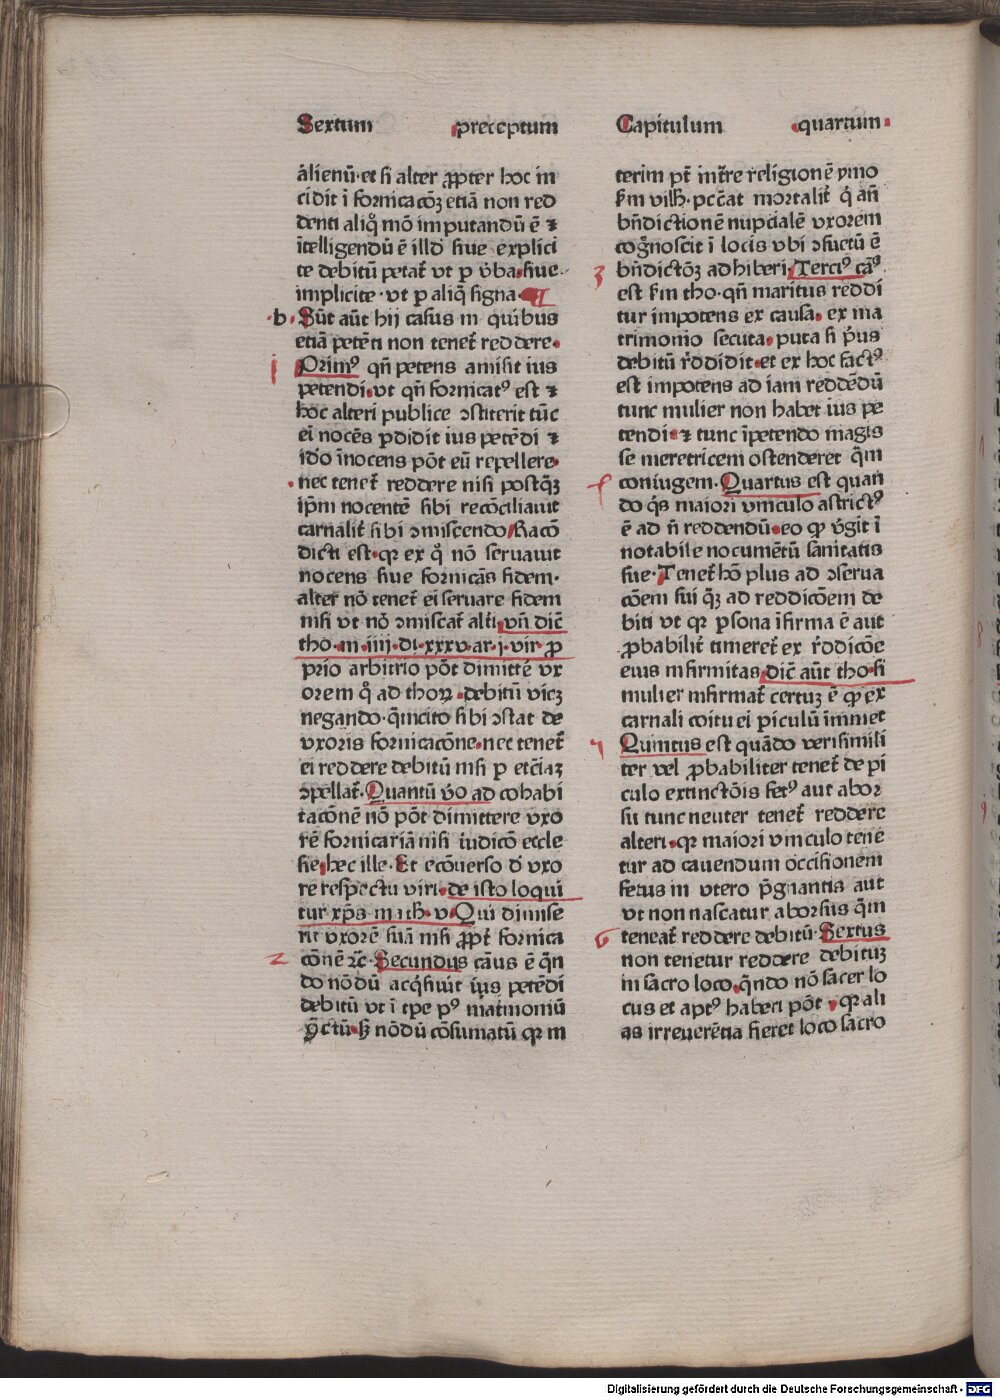 Sextum preceptum Capitulum quartum
alienū·et si alter ꝓpter hoc in
cidit ī fornicacōꝫ etiā non red
denti aliqͦ mō imputandū ē ⁊
ītelligendū ē illđ siue explici
te debitū petat᷑ vt ꝑ v̄ba·siue
implicite·vt ꝑ aliqͣ signa·
·b· Sūt aūt hij casus in quibus
etiā petēti non tenet᷑ reddere·
i Primꝰ qn̄ petens amisit ius
petendi·vt qn̄ fornicatꝰ est ⁊
hoc alteri publice ↄstiterit tūc
ei nocēs ꝑdidit ius petēdi ⁊
iđo īnocens pōt eū repellere·
·nec tenet᷑ reddere nisi postqͣꝫ
ip̄m nocentē sibi recōciliauit
carnalit᷑ sibi ↄmiscendo/Racō
dicti est·qꝛ ex qͦ nō seruauit
nocens siue fornicās fidem·
alter nō tenet᷑ ei seruare fidem
nisi vt nō ↄmiscat᷑ alt᷑i·vn̄ dic̄
tho·in·iiii·di·xxxv·ar·j·vir ꝓ
prio arbitrio pōt dimitte᷑ vx
orem qͣ ad thoꝝ·debitū vicꝫ
negando·qͣmcito sibi ↄstat de
vxoris fornicacōne·nec tenet᷑
ei reddere debitū nisi ꝑ etc̄iaꝫ
ↄpellat᷑·Quantū v̄o ad cohabi
tacōnē nō pōt dimittere vxo
rē fornicariā nisi iudicō eccle
sie·hec ille·Et ecōuerso đ vxo
re respectu viri·de isto loqui
tur xp̄s math·v·Qui dimise
rit vxorē suā nisi ꝓpt᷑ fornica
2 cōnē ⁊c·Secundus cāus ē qn̄
do nōdū acqͥsiuit ius petēdi
debitū vt ī tp̄e pꝰ mat᷑moniū
ꝯ̄ctū·sꝫ nōdū cōsumatū qꝛ in
terim pt̄ int᷑re religionē ymo
ẜm vilħ·pcc̄at mortalit᷑ qͥ an̄
bn̄dictionē nupcialē vxorem
cogn̄oscit ī locis vbi ↄsuctū ē
3 bn̄dictōꝫ adhiberi·Terciꝰ cāꝰ
est ẜm tho·qn̄ maritus reddi
tur impotens ex causa· ex ma
trimonio secuta·puta si pͥus
debitū r̄ddidit·et ex hoc factꝰ
est impotens ad iam reddēdū
tunc mulier non habet ius pe
tendi·⁊ tunc īpetendo magis
se meretricem ostenderet qͣm
coniugem·Quartus est quan
do qͥs maiori vinculo astrictꝰ
ē ad n̄ reddendū·eo ꝙ v̓git ī
notabile nocumētū sanitatis
sue·Tenet᷑ hō plus ad ↄserua
cōem sui qͣꝫ ad reddicōem de
biti vt qꝛ ꝑsona īfirma ē aut
ꝓbabilit᷑ timeret᷑ ex r̄ddicōe
eius infirmitas·dic̄ aūt tho·si
mulier infirmat᷑ certuꝫ ē ꝙ ex
carnali coitu ei ꝑiculū īminet
Quintus est quādo verisimili
ter vel ꝓbabiliter tenet᷑ de pi
culo extinctōis fetꝰ aut abor
sū tunc neuter tenet᷑ reddere
alteri·qꝛ maiori vinculo tene
tur ad cauendum occisionem
fetus in vtero p̄gnantis aut
vt non nascatur aborsus qͣm
6 teneat᷑ reddere debitū·Sextus
non tenetur reddere debituꝫ
in sacro loco·qn̄do nō sacer lo
cus et aptꝰ haberi pōt·qꝛ ali
as irreuerētia fieret loco sacro
Digitalisierung gefördert durch die Deutsche Forschungsgemeinschaft - DFG